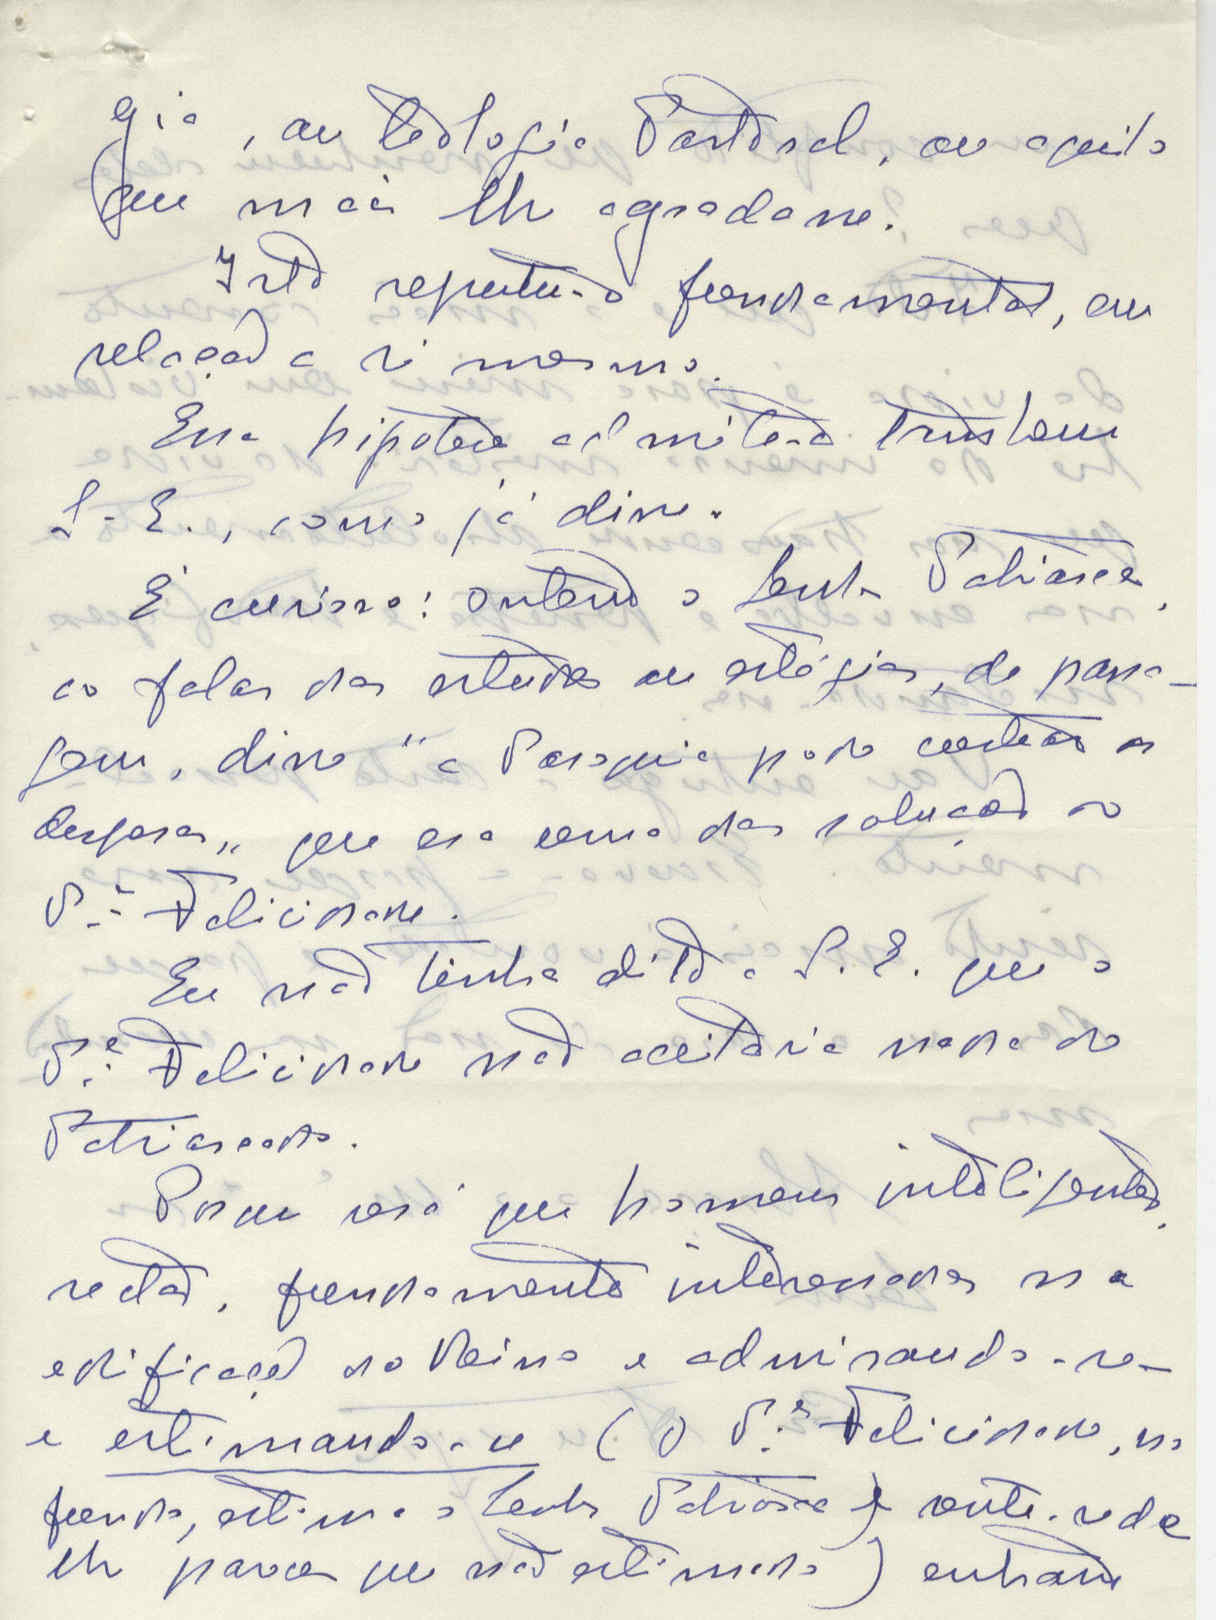 gia, ou teologia Pastoral, ou aquilo
que mais lhe agradasse.
Isto reputu-o fundamental, em
relação a si mesmo.
Essa hipótese admite-a também
S. E., como já disse.
É curioso: ontem o Senhor Patriarca,
ao falar dos estudos ou estágios, de passa-
gem, disse "a Paróquia pode custear as
despesas" que era uma das soluções do
P.e Felicidade.
Eu não tinha dito a S. E. que o
P.e Felicidade não aceitaria nada do
Patriarcado.
Porque será que homens inteligentes,
rectos, fundamente interessados na
edificação do Reino e admirando-se
e estimando-se (O P.e Felicidade, no
fundo, estima o Senhor Patriarca e
lhe parece que não estimado) entram